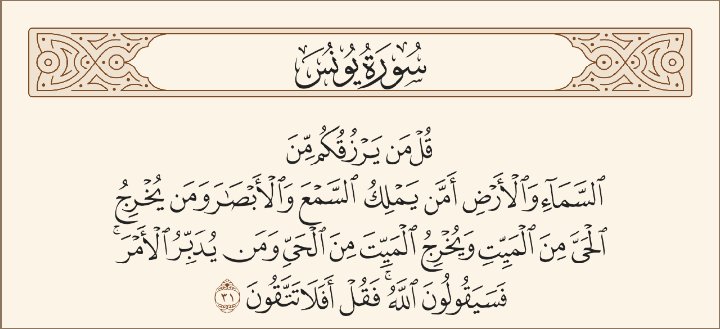 سُورَةُ يُونُسَ
قُلۡ مَن يَرۡزُقُكُم مِّنَ
ٱلسَّمَآءِ وَٱلۡأَرۡضِ أَمَّن يَمۡلِكُ ٱلسَّمۡعَ وَٱلۡأَبۡصَٰرَ وَمَن يُخۡرِجُ
ٱلۡحَيَّ مِنَ ٱلۡمَيِّتِ وَيُخۡرِجُ ٱلۡمَيِّتَ مِنَ ٱلۡحَيِّ وَمَن يُدَبِّرُ ٱلۡأَمۡرَۚ
فَسَيَقُولُونَ ٱللَّهُۚ فَقُلۡ أَفَلَا تَتَّقُونَ ٣١